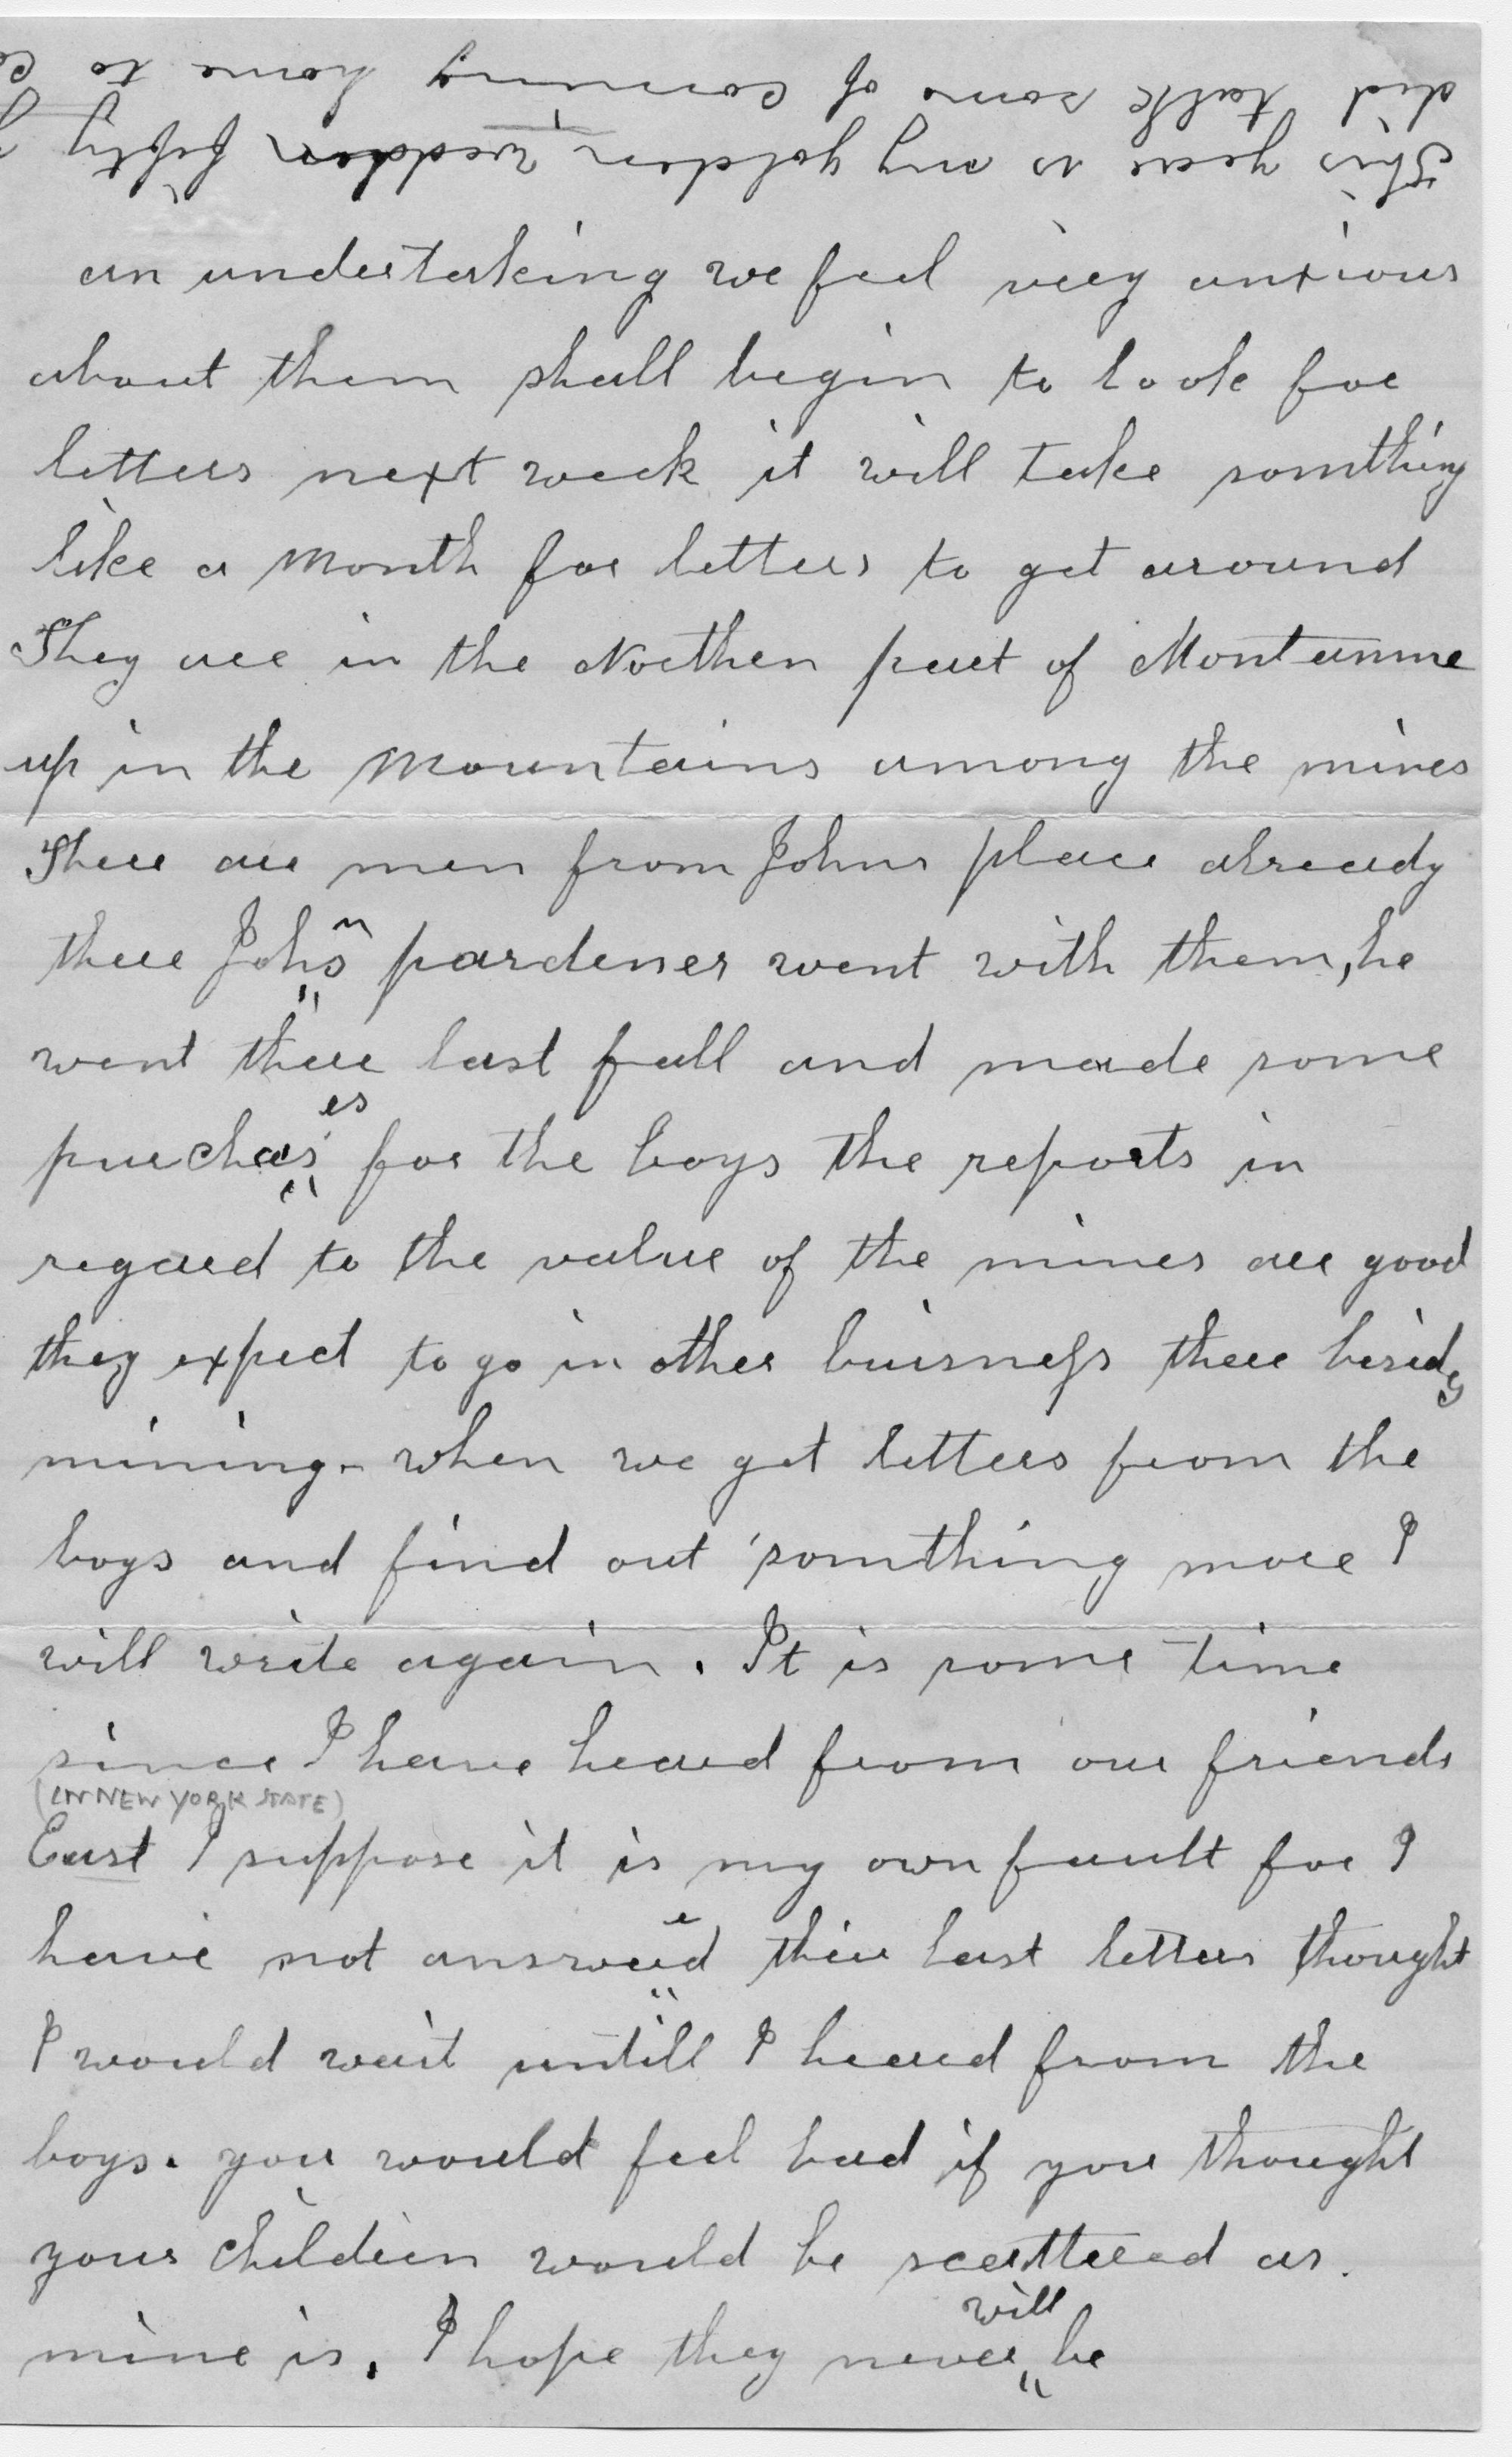 This year is my golden wedden fifty
did talk some of comming home to
an undertaking we feel very anxious
about them shall begin to look for
letters next week it will take somthing
like a month for letters to get around
They are in the Northen part of Montanne
up in the mountains among the mines
There are men from Johns place already
there Johns pardener went with them, he
went there last fall and made some
purchases for the boys the reports in
regard to the value of the mines are good
they expect to go in other buisness there besides
mining - when we get letters from the
boys and find out somthing more I
will write again. It is some time
since I have heard from our friends
(IN NEW YORK STATE)
East I suppose it is my own fault for I
have not answered thier last letters thought
I would wait untill I heard from the
boys. you would feel bad if you thought
your children would be scattered as.
mine is. I hope they never will be